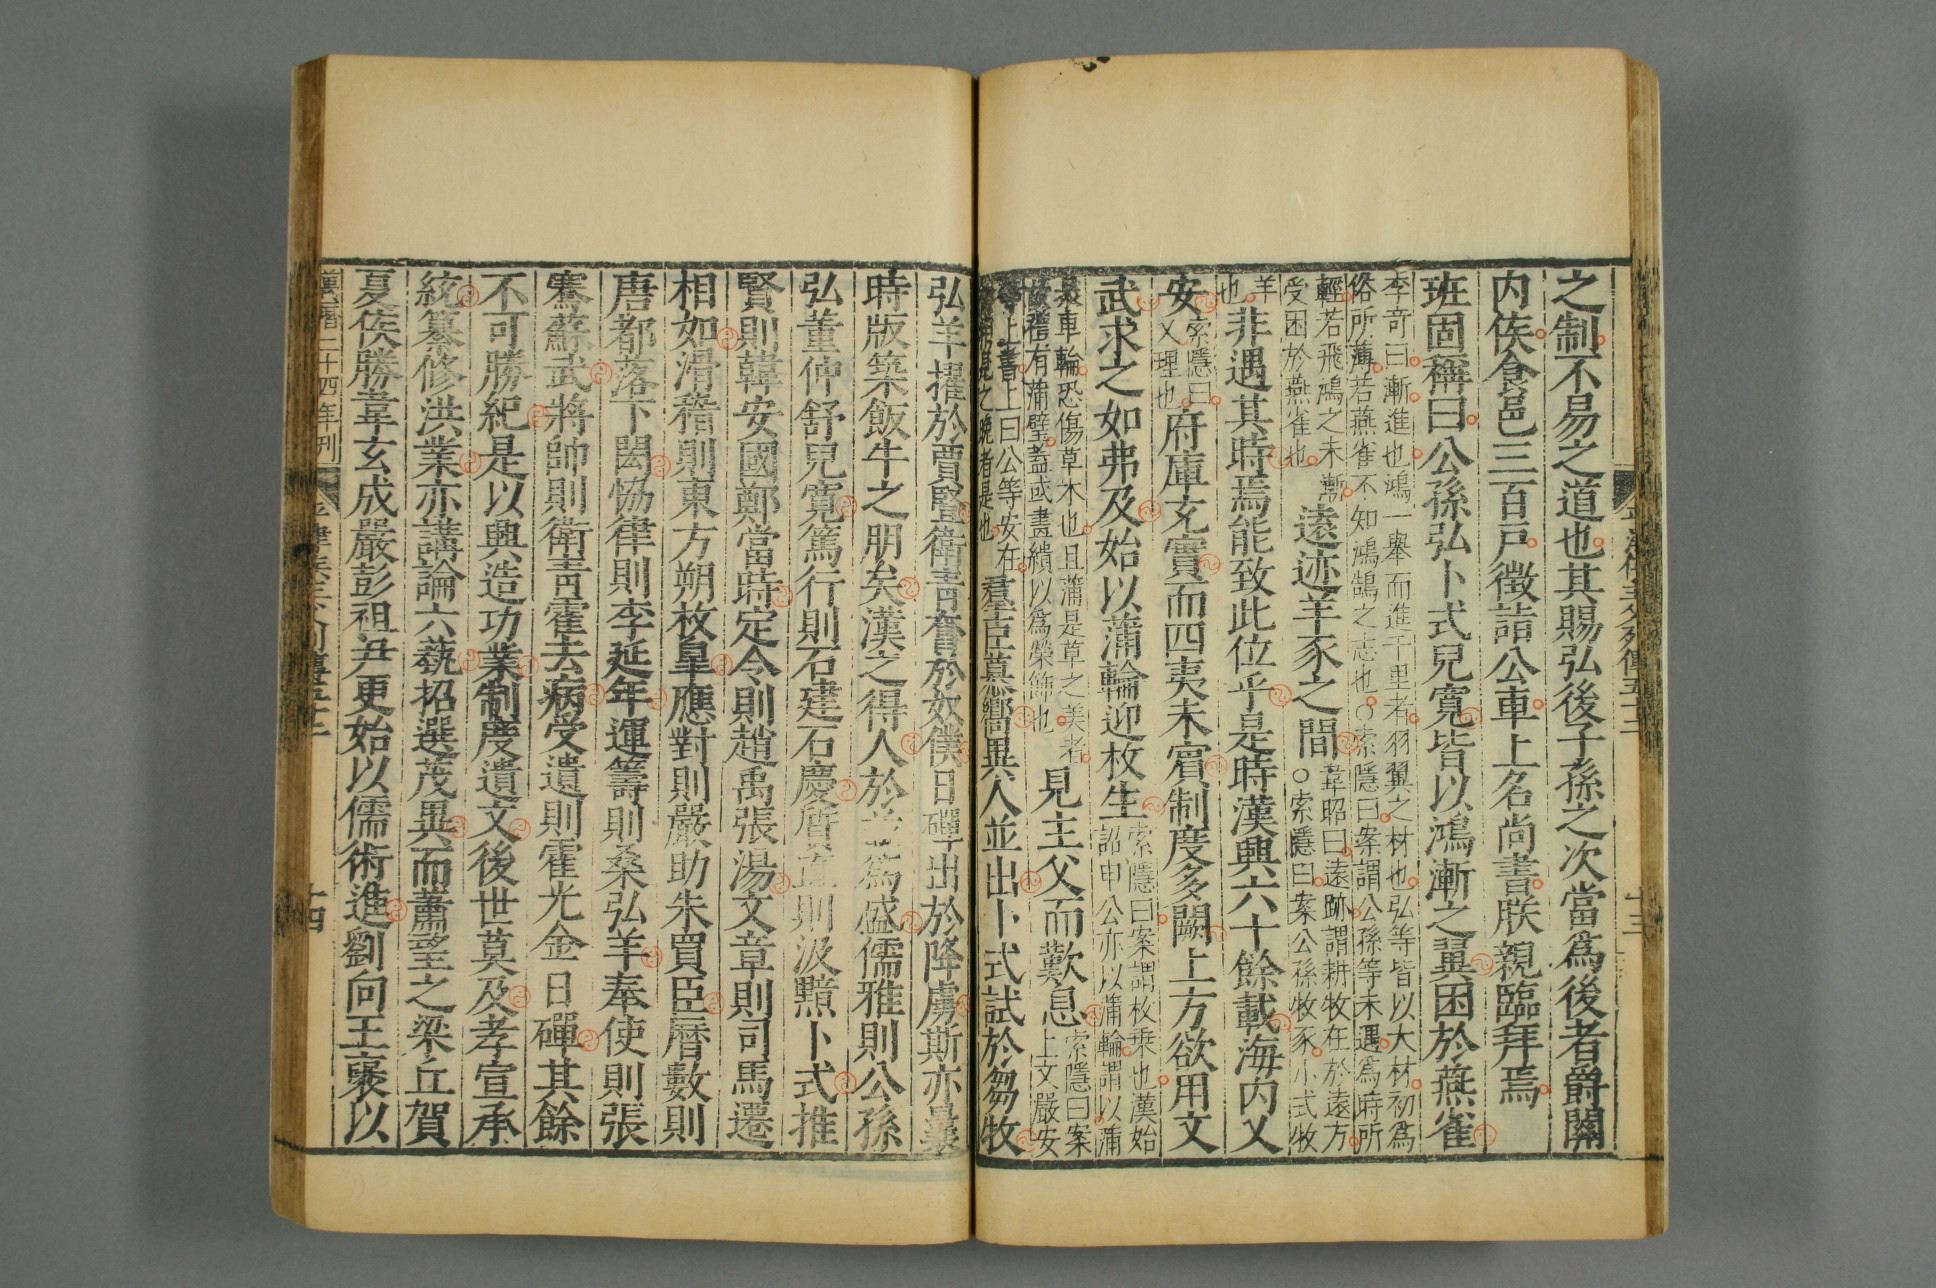 之制不易之道也其賜弘後子孫之次當爲後者爵關
内侯食邑三百戶徵詣公車上名尚書朕親臨拜焉
班固稱曰公孫弘卜式兒寬皆以鴻漸之翼困於燕雀
李奇曰漸進也鴻一舉而進千里者羽翼之材也弘等皆以大材初爲
俗所薄若燕雀不知鴻鵠之志也○索隱曰案謂公孫等未遇爲時所
輕若飛鴻之未漸
受困於燕雀也
遠迹羊豕之間
韋昭曰遠跡謂耕牧在於遠方
○索隱曰案公孫牧豕卜式牧
羊
也
非遇其時焉能致此位乎是時漢興六十餘載海内乂
安
索隱曰
乂理也
府庫充實而四夷未賓制度多闕上方欲用文
武求之如弗及始以蒲輪迎枚生
索隱曰案謂枚乗也漢始
詔申公亦以蒲輪謂以蒲
裹車輪恐傷草木也且蒲是草之美者
故禮有蒲璧蓋或畫繢以爲榮飾也
見主父而歎息
索隱曰案
上文嚴安
等上書上曰公等安在
何相見之晩者是也
羣臣慕嚮異人並出卜式試於芻牧
弘羊擢於賈豎衛青奮於奴僕日磾出於降虜斯亦曩
時版築飯牛之朋矣漢之得人於茲爲盛儒雅則公孫
弘董仲舒兒寬篤行則石建石慶質直則汲黯卜式推
賢則韓安國鄭當時定令則趙禹張湯文章則司馬遷
相如滑稽則東方朔枚臯應對則嚴助朱買臣曆數則
唐都落下閎協律則李延年運籌則桑弘羊奉使則張
騫蘇武將帥則衛青霍去病受遺則霍光金日磾其餘
不可勝紀是以興造功業制度遺文後世莫及孝宣承
統纂修洪業亦講論六藝招選茂異而蕭望之梁丘賀
夏侯勝韋玄成嚴彭祖尹更始以儒術進劉向王褒以
萬曆二十四年刊
十四